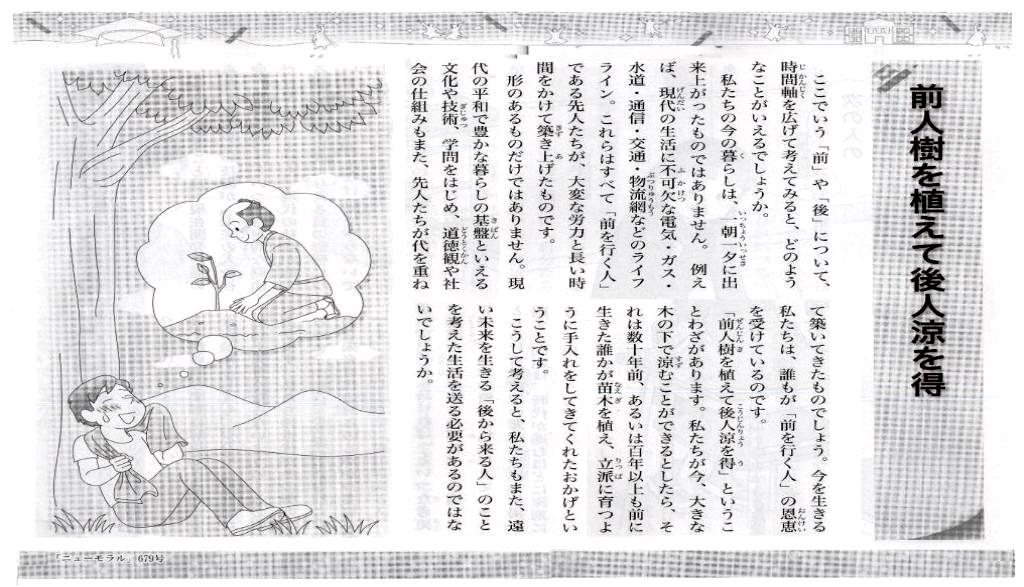 前人樹を植えて後人涼を得
ここでいう「前」や「後」について、
時間軸を広げて考えてみると、どのよう
なことがいえるでしょうか。
私たちの今の暮らしは、一朝一夕に出
来上がったものではありません。例え
ば、現代の生活に不可欠な電気・ガス・
水道・通信・交通・物流網などのライフ
ライン。これらはすべて「前を行く人」
である先人たちが、大変な労力と長い時
間をかけて築き上げたものです。
形のあるものだけではありません。現
代の平和で豊かな暮らしの基盤といえる
文化や技術、学問をはじめ、道徳観や社
会の仕組みもまた、先人たちが代を重ね
て築いてきたものでしょう。今を生きる
私たちは、誰もが「前を行く人」の恩恵
を受けているのです。
「前人樹を植えて後人涼を得」というこ
とわざがあります。私たちが今、大きな
木の下で涼むことができるとしたら、そ
れは数十年前、あるいは百年以上も前に
生きた誰かが苗木を植え、立派に育つよ
うに手入れをしてきてくれたおかげとい
うことです。
こうして考えると、私たちもまた、遠
い未来を生きる「後から来る人」のこと
を考えた生活を送る必要があるのではな
いでしょうか。
『ニューモラル』679号